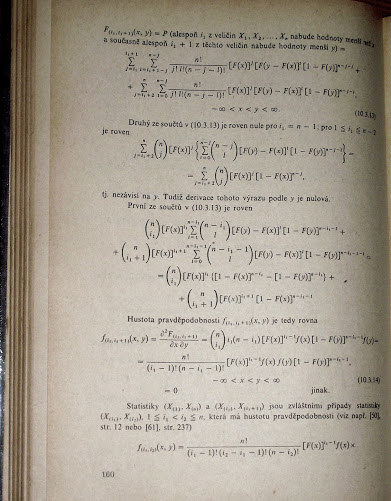 F_{(i_1,i_1+1)}(x, y) = P (alespoň i_1 z veličin X_1, X_2, ..., X_n nabude hodnoty menší než x
a současně alespoň i_1 + 1 z těchto veličin nabude hodnoty menší y) =
= \sum_{j=i_1}^{i_1+1} \sum_{l=i_1+1-j}^{n-j} \frac{n!}{j! l! (n-j-l)!} [F(x)]^j [F(y) - F(x)]^l [1 - F(y)]^{n-j-l} +
+ \sum_{j=i_1+2}^{n} \sum_{l=0}^{n-j} \frac{n!}{j! l! (n-j-l)!} [F(x)]^j [F(y) - F(x)]^l [1 - F(y)]^{n-j-l},
-∞ < x < y < ∞. (10.3.13)
Druhý ze součtů v (10.3.13) je roven nule pro i_1 = n - 1; pro 1 ≤ i_1 ≤ n - 2
je roven
\sum_{j=i_1+2}^{n} \binom{n}{j} [F(x)]^j \{ \sum_{l=0}^{n-j} \binom{n-j}{l} [F(y) - F(x)]^l [1 - F(y)]^{n-j-l} \} =
= \sum_{j=i_1+2}^{n} \binom{n}{j} [F(x)]^j [1 - F(x)]^{n-j},
tj. nezávisí na y. Tudíž derivace tohoto výrazu podle y je nulová.
První ze součtů v (10.3.13) je roven
\binom{n}{i_1} [F(x)]^{i_1} \sum_{l=1}^{n-i_1} \binom{n-i_1}{l} [F(y) - F(x)]^l [1 - F(y)]^{n-i_1-l} +
+ \binom{n}{i_1+1} [F(x)]^{i_1+1} \sum_{l=0}^{n-i_1-1} \binom{n-i_1-1}{l} [F(y) - F(x)]^l [1 - F(y)]^{n-i_1-1-l} =
= \binom{n}{i_1} [F(x)]^{i_1} \{[1 - F(x)]^{n-i_1} - [1 - F(y)]^{n-i_1}\} +
+ \binom{n}{i_1+1} [F(x)]^{i_1+1} [1 - F(x)]^{n-i_1-1}
Hustota pravděpodobnosti f_{(i_1,i_1+1)}(x, y) je tedy rovna
f_{(i_1,i_1+1)}(x, y) = \frac{∂^2 F_{(i_1,i_1+1)}}{∂x ∂y} = \binom{n}{i_1} i_1(n - i_1) [F(x)]^{i_1-1} f(x) [1 - F(y)]^{n-i_1-1} f(y) =
= \frac{n!}{(i_1 - 1)! (n - i_1 - 1)!} [F(x)]^{i_1-1} f(x) f(y) [1 - F(y)]^{n-i_1-1},
-∞ < x < y < ∞ (10.3.14)
= 0 jinak.
Statistiky (X_{(1)}, X_{(n)}) a (X_{(i_1)}, X_{(i_1+1)}) jsou zvláštními případy statistiky
(X_{(i_1)}, X_{(i_2)}), 1 ≤ i_1 < i_2 ≤ n, která má hustotu pravděpodobnosti (viz např. [50],
str. 12 nebo [61], str. 237)
f_{(i_1,i_2)}(x, y) = \frac{n!}{(i_1 - 1)! (i_2 - i_1 - 1)! (n - i_2)!} [F(x)]^{i_1-1} f(x) ×
160